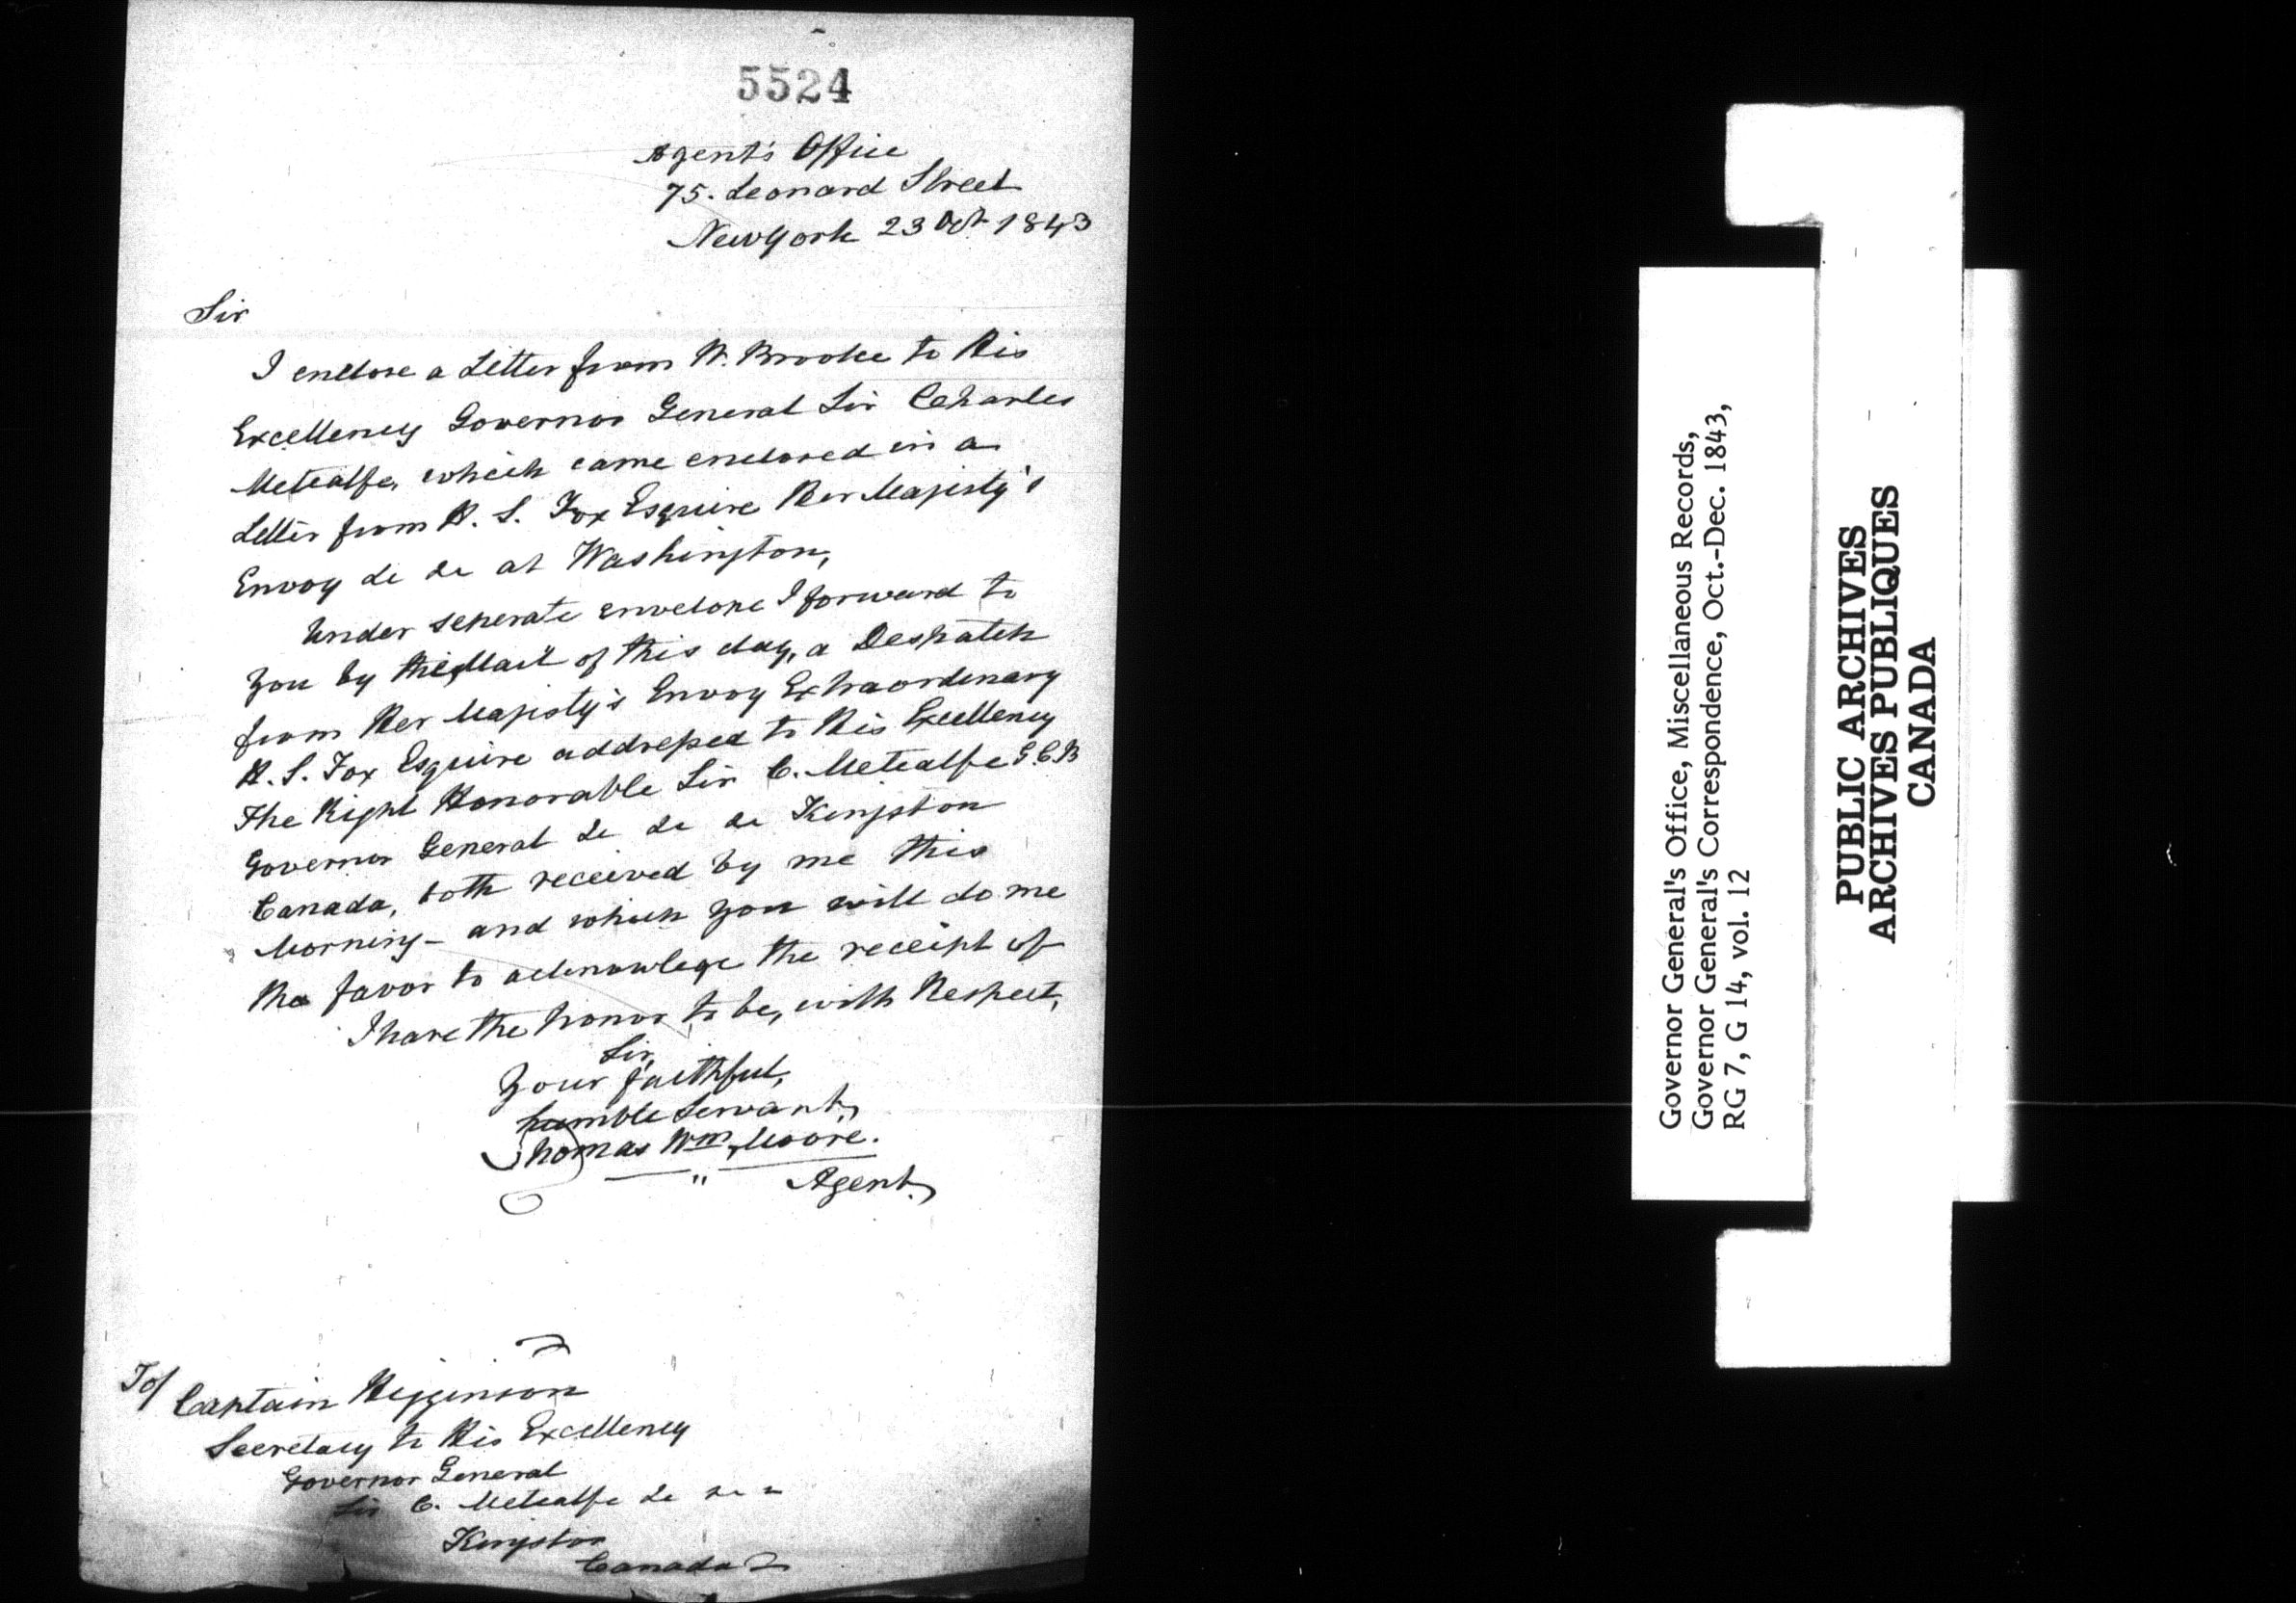 5524
Agent's Office
75. Leonard Street
New York 23 Oct 1843
Sir
I enclose a Letter from W. Brooke to His
Excellency Governor General Sir Charles
Metcalfe, which came enclosed in a
Letter from H. S. Fox Esquire Her Majesty's
Envoy &c &c at Washington,
Under seperate envelope I forward to
you by the Mail of this day, a Despatch
from Her Majesty's Envoy Extraordinary
H. S. Fox Esquire addressed to His Excellency
The Right Honorable Sir C. Metcalfe G.C.B
Governor General &c &c &c Kingston
Canada, both received by me this
Morning - and which you will do me
the favor to acknowlege the receipt of
I have the honor to be, with Respect,
Sir,
Your faithful,
humble Servant,
Thomas Wm Moore.
Agent,
To/
Captain Higginson
Secretary to His Excellency
Governor General
Sir C. Metcalfe &c &c &c
Kingston
Canada
Governor General's Office, Miscellaneous Records,
Governor General's Correspondence, Oct.-Dec. 1843,
RG 7, G 14, vol. 12
PUBLIC ARCHIVES
ARCHIVES PUBLIQUES
CANADA